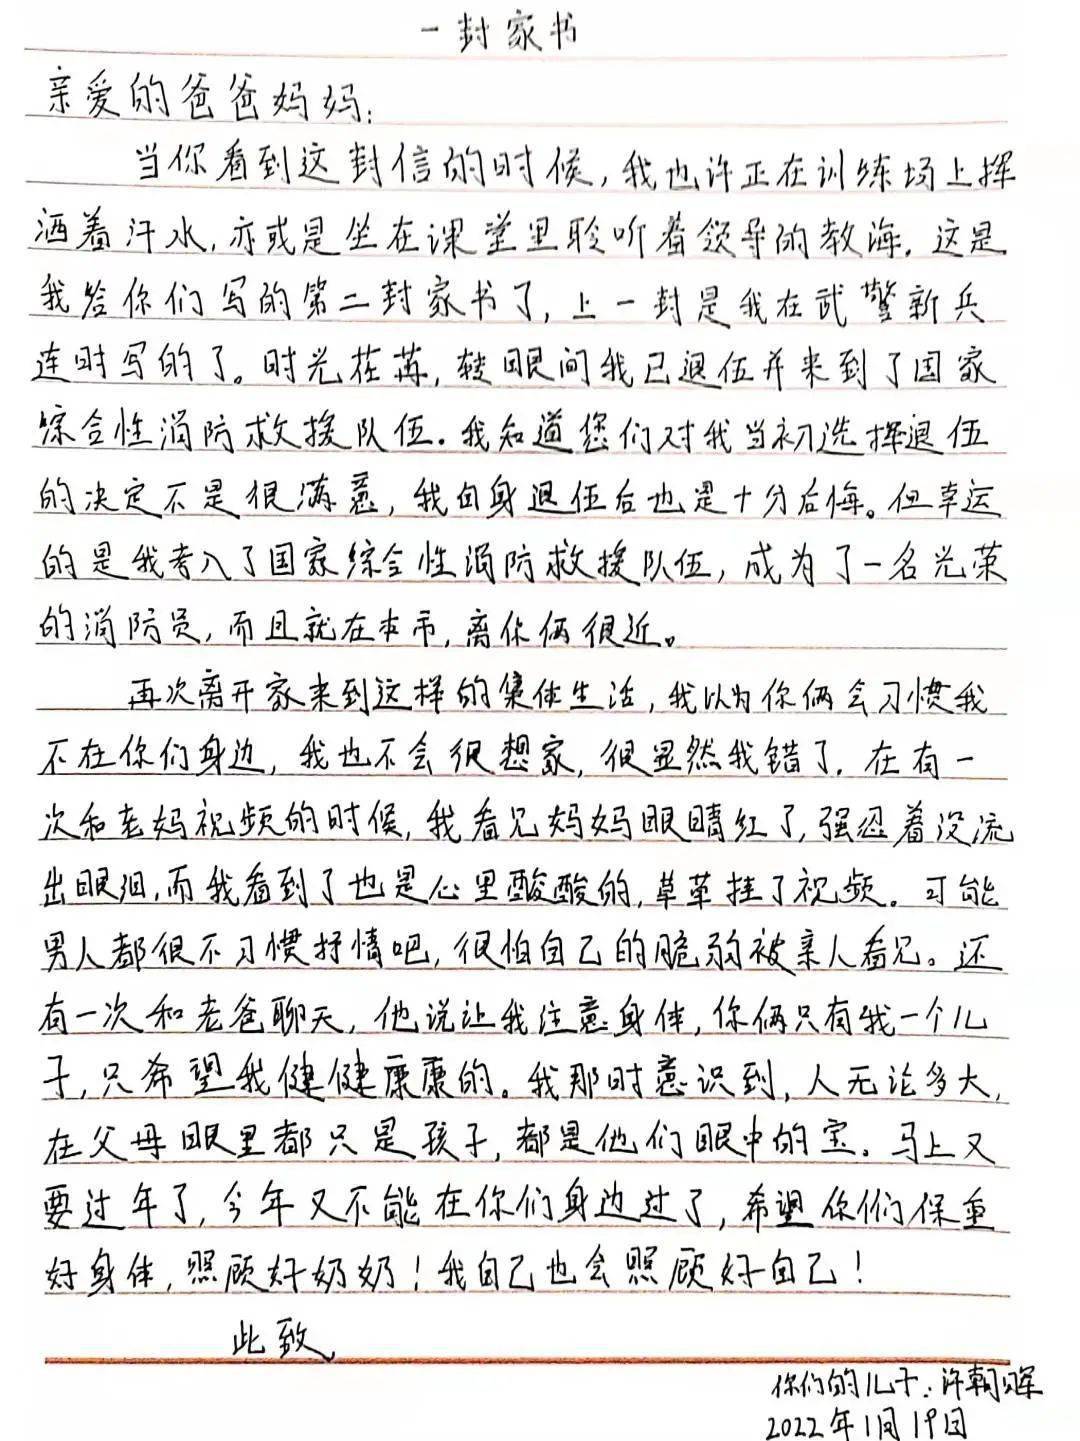 一封家书
亲爱的爸爸妈妈:
当你看到这封信的时候,我也许正在训练场上挥
洒着汗水,亦或是坐在课堂里聆听着领导的教海。这是
我给你们写的第二封家书了,上一封是我在武警新兵
连时写的了。时光荏苒,转眼间我已退伍并来到了国家
综合性消防救援队伍。我知道您们对我当初选择退伍
的决定不是很满意,我自身退伍后也是十分后悔。但幸运
的是我考入了国家综合性消防救援队伍,成为了一名光荣
的消防员,而且就在本市,离你俩很近。
再次离开家来到这样的集体生活,我以为你俩会习惯我
不在你们身边,我也不会很想家,很显然我错了,在有一
次和老妈视频的时候,我看见妈妈眼睛红了,强忍着没流
出眼泪,而我看到了也是心里酸酸的,草草挂了视频。可能
男人都很不习惯抒情吧,很怕自己的脆弱被亲人看见。还
有一次和老爸聊天,他说让我注意身体,你俩只有我一个儿
子,只希望我健健康康的。我那时意识到,人无论多大,
在父母眼里都只是孩子,都是他们眼中的宝。马上又
要过年了,今年又不能在你们身边过了,希望你们保重
好身体,照顾好奶奶!我自己也会照顾好自己!
此致
你们的儿子:许朝晖
2022年1月19日